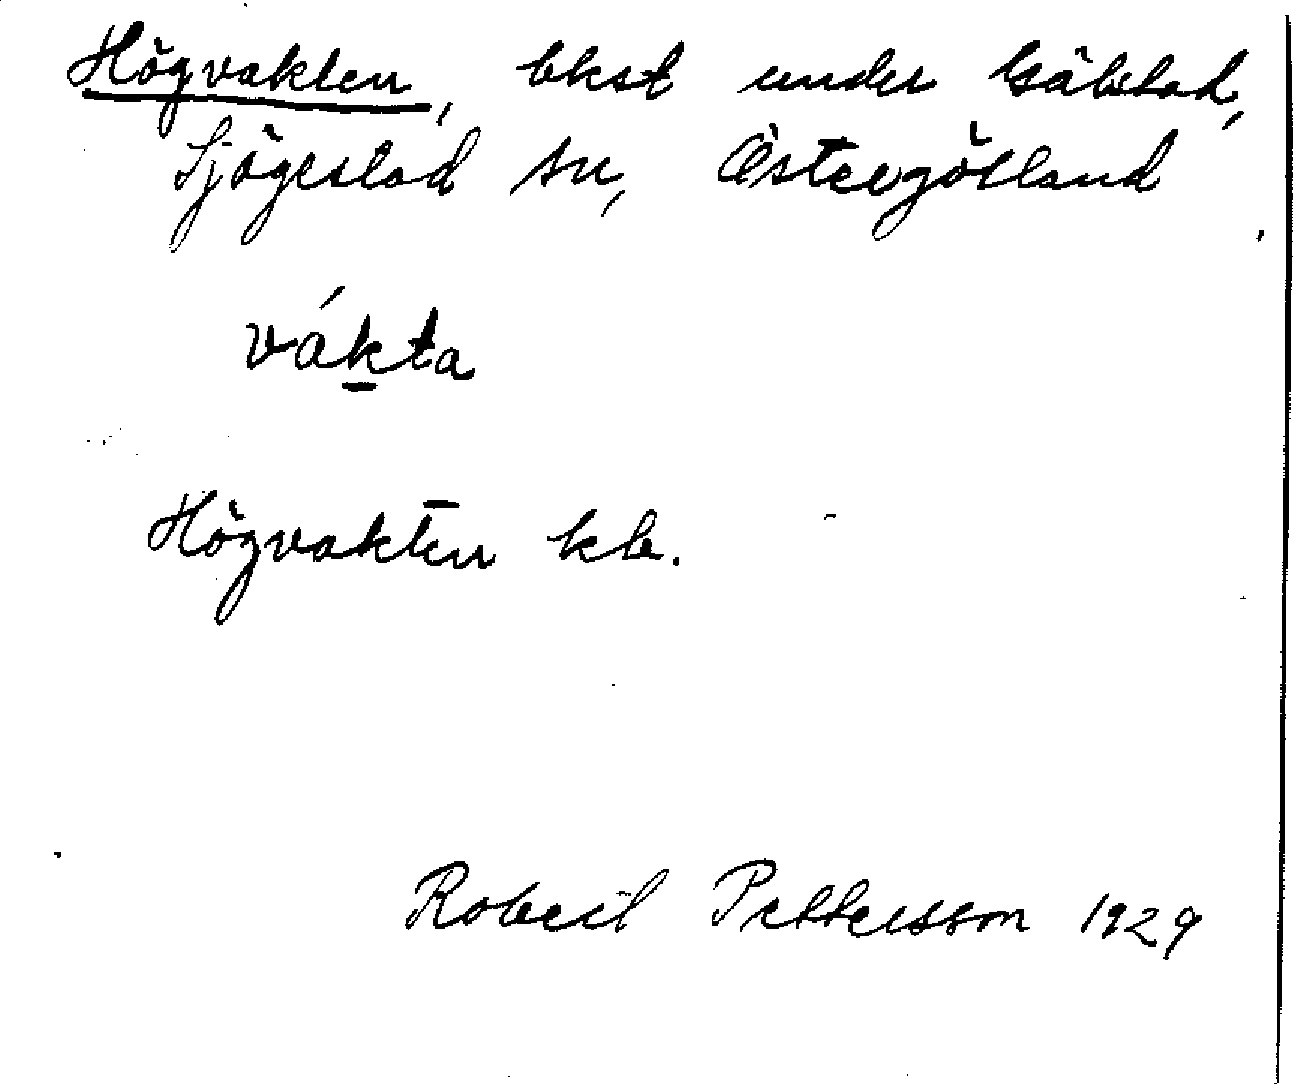 Högvakten, bkst under Gälstad,
Sjögestad sn, Östergötland
vákta
Högvakten kb.
Robert Pettersson 1929